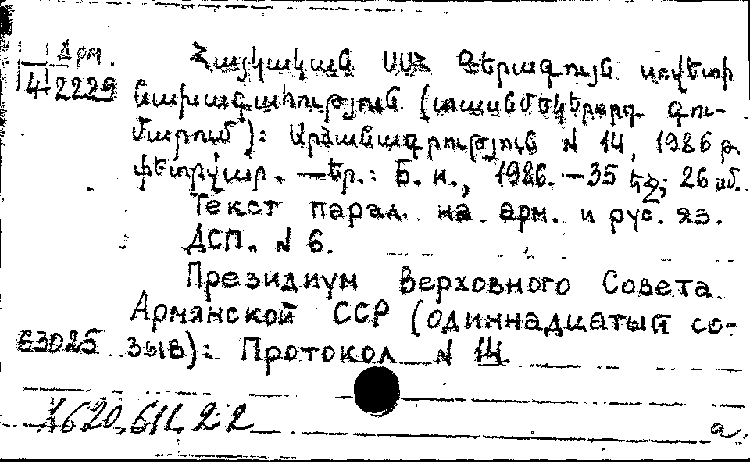 Арм.
4-2229
Հայկական ՍՍՀ Գերագույն սովետի
նախագահություն (տասնմեկերորդ գու-
մարում): Արձանագրություն N 14, 1986 թ.
փետրվար. — Եր.: Б. и., 1986. — 35 էջ; 26 սմ.
Текст парал. на арм. и рус. яз.
ДСП. N 6.
Президиум Верховного Совета
Армянской ССР (одиннадцатый со-
63025 зыв): Протокол N 14.
а.